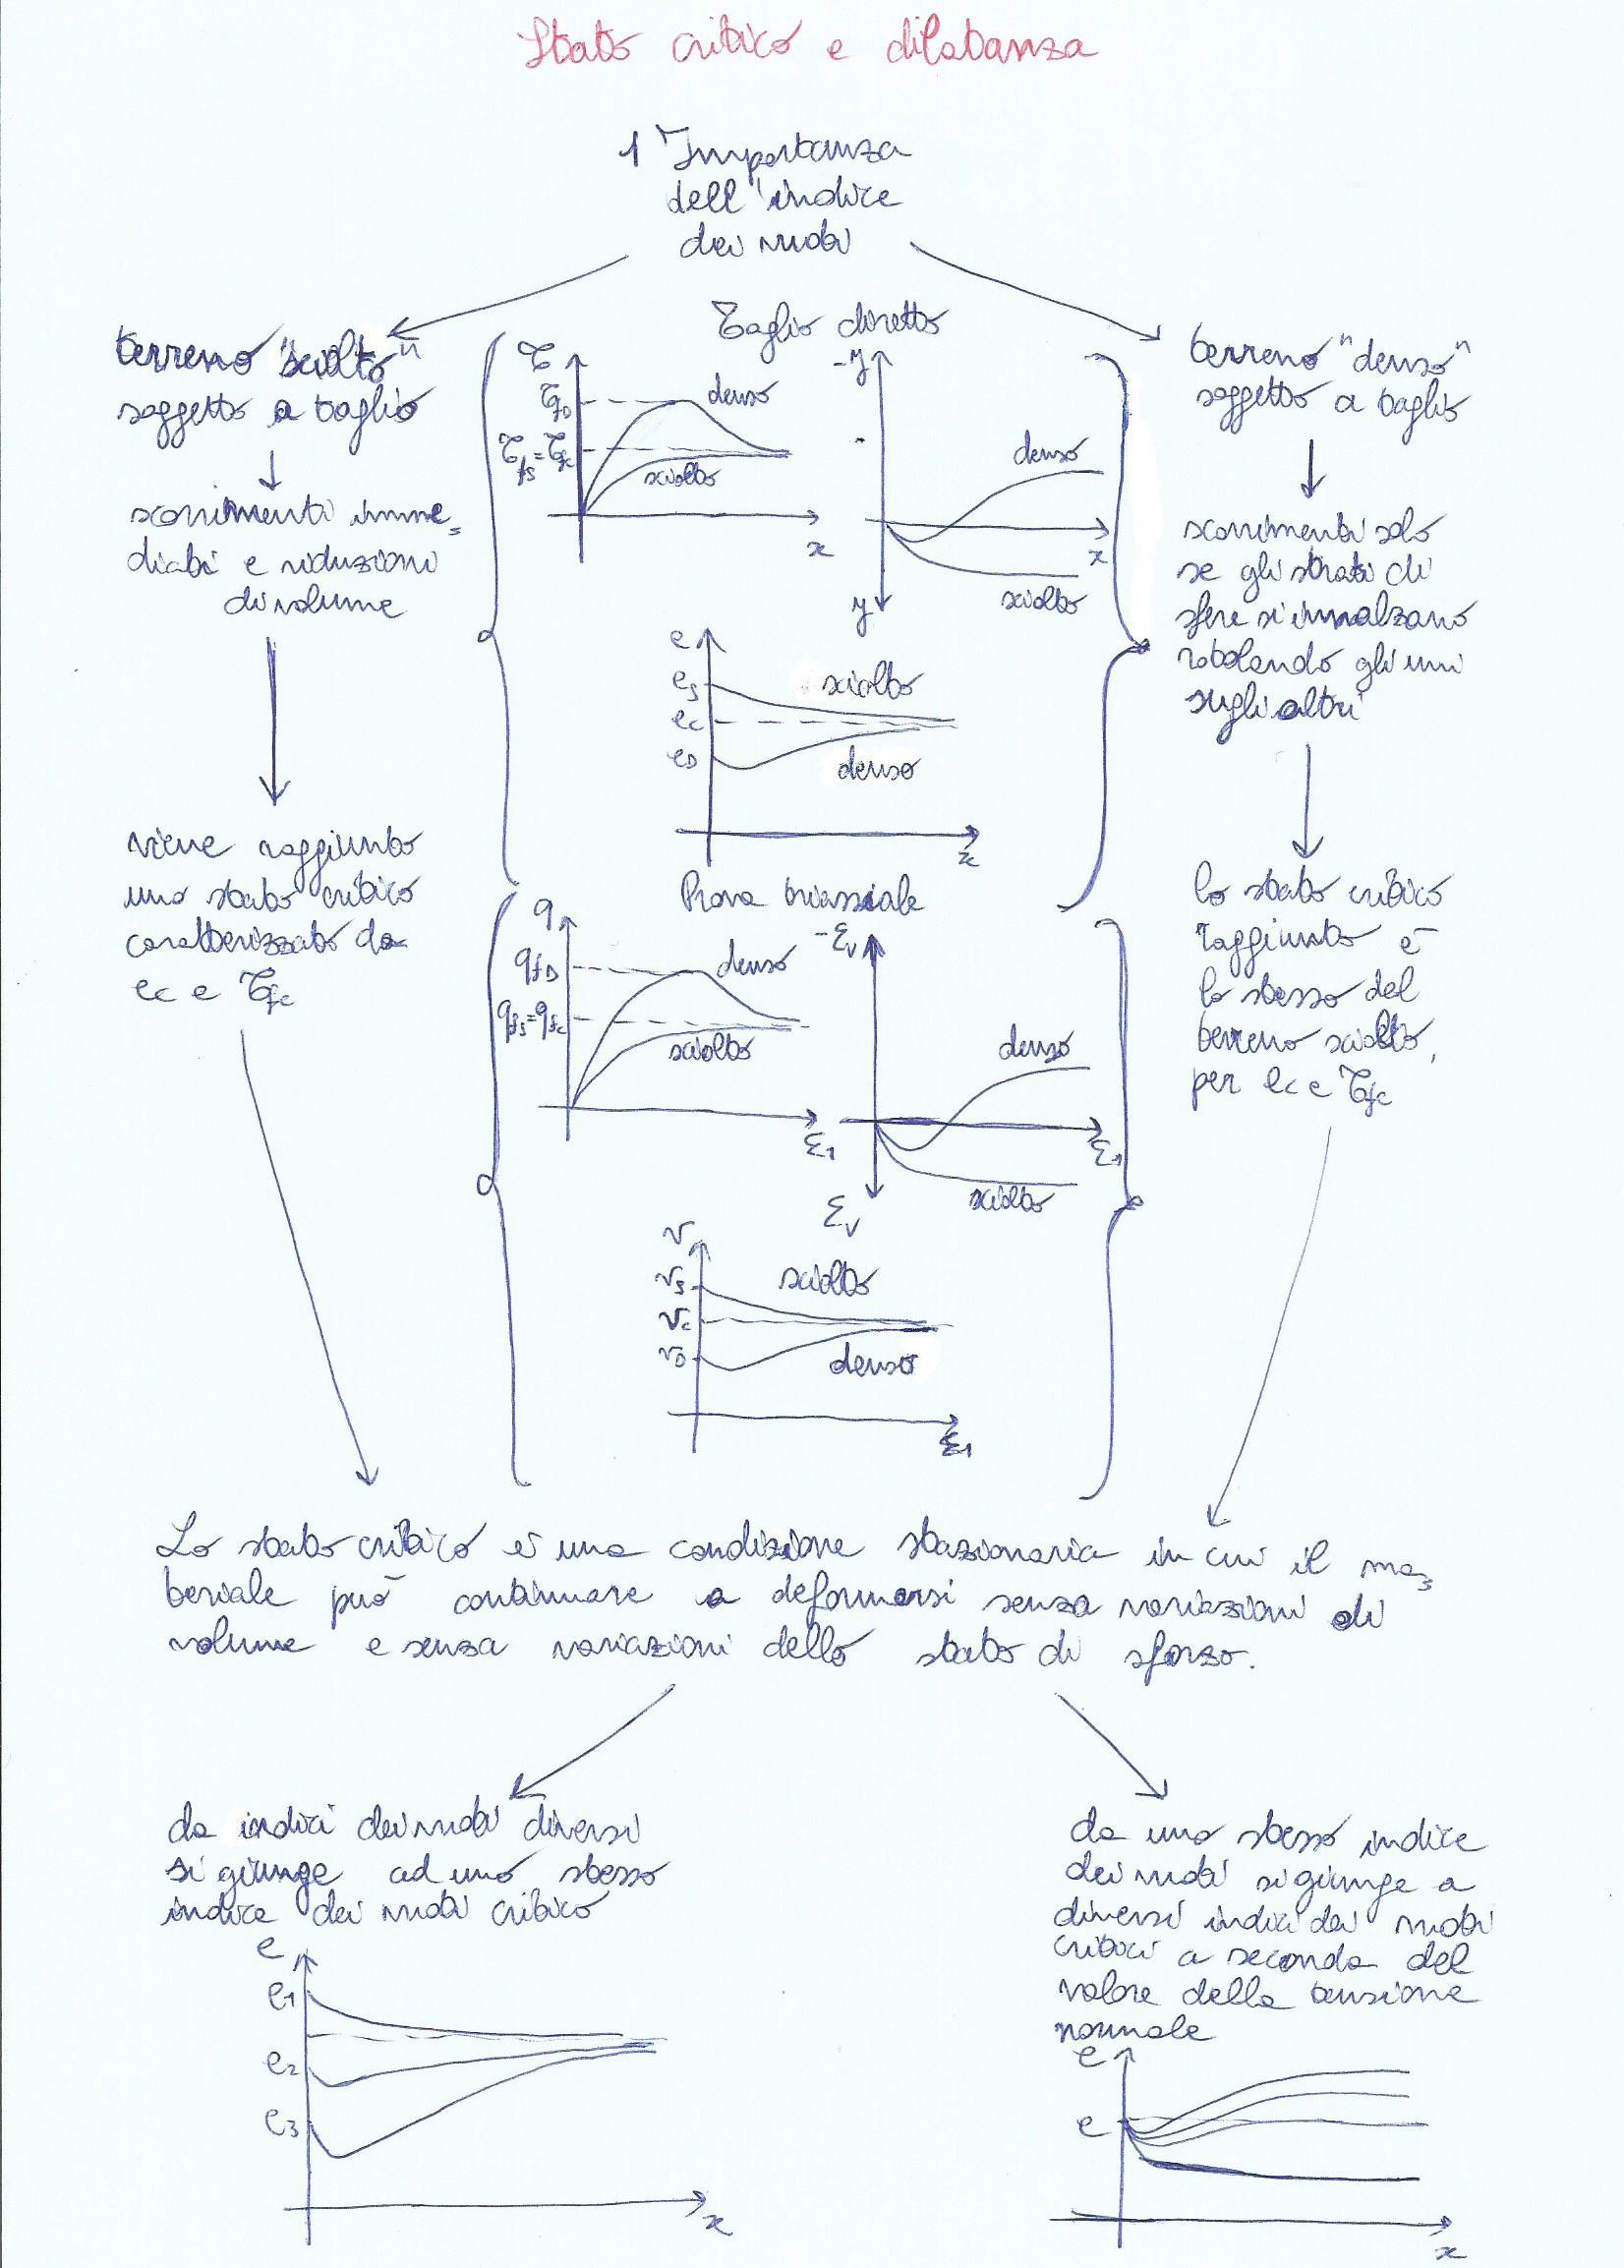 Stato critico e dilatanza
1 Importanza
dell'indice
dei vuoti
terreno "sciolto"
soggetto a taglio
scorrimenti imme=
diati e riduzioni
di volume
viene raggiunto
uno stato critico
caratterizzato da
ec e τfc
Taglio diretto
τ
τfD
τfs=τfc
denso
sciolto
x
-y
denso
x
sciolto
y
e
es
ec
eD
sciolto
denso
x
Prova triassiale
q
qfD
qfs=qfc
denso
sciolto
ε1
-εv
denso
ε1
sciolto
εv
v
vs
vc
vD
sciolto
denso
ε1
terreno "denso"
soggetto a taglio
scorrimenti solo
se gli strati di
sfere si innalzano
rotolando gli uni
sugli altri
lo stato critico
raggiunto è
lo stesso del
terreno sciolto,
per ec e τfc
Lo stato critico è una condizione stazionaria in cui il ma=
teriale può continuare a deformarsi senza variazioni di
volume e senza variazioni dello stato di sforzo.
da indici dei vuoti diversi
si giunge ad uno stesso
indice dei vuoti critico
e
e1
e2
e3
x
da uno stesso indice
dei vuoti si giunge a
diversi indici dei vuoti
critici a seconda del
valore della tensione
normale
e
e
x